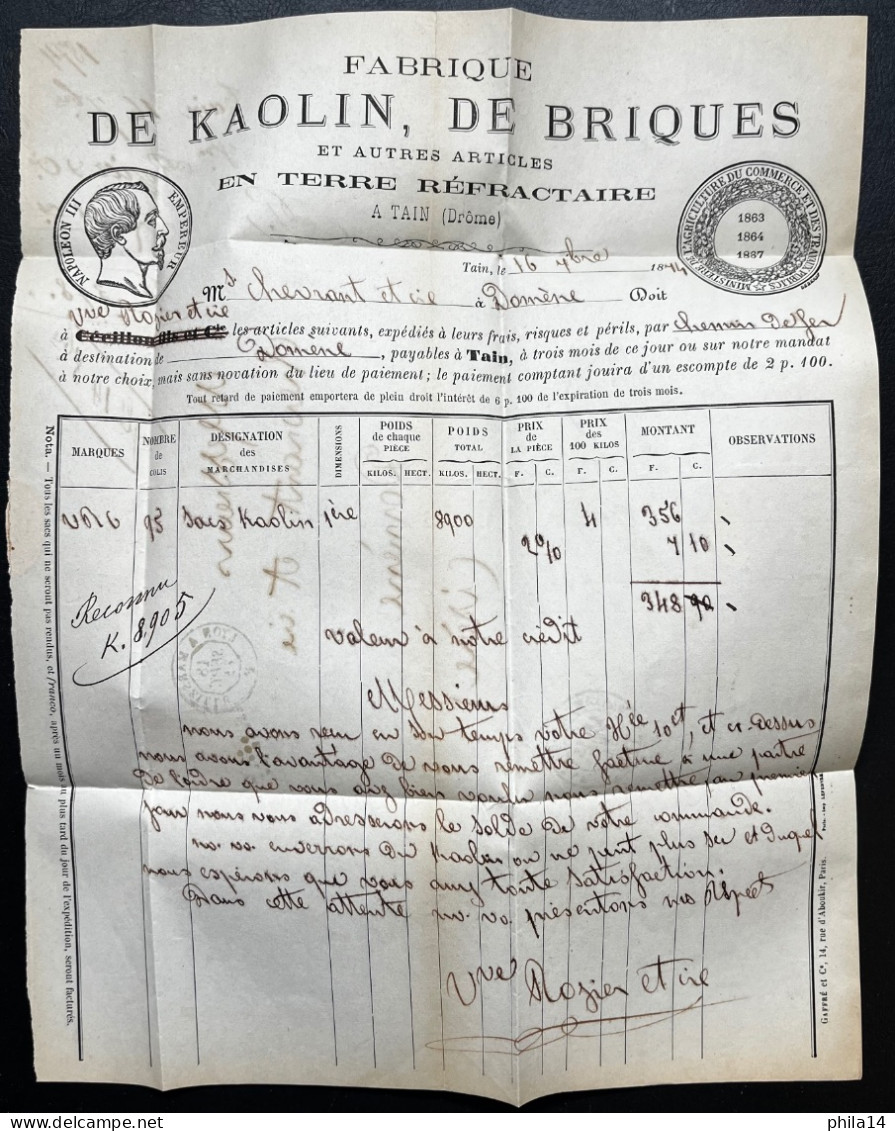 FABRIQUE
DE KAOLIN, DE BRIQUES
ET AUTRES ARTICLES
EN TERRE RÉFRACTAIRE
A TAIN (Drôme)
NAPOLEON III EMPEREUR
MINISTÈRE DE L'AGRICULTURE DU COMMERCE ET DES TRAVAUX PUBLICS
1863
1864
1867
Tain, le 16 9bre 1874
Ms Chevrant et cie à Domène Doit
Vve Rozier et cie
à Cérillon fils et Cie les articles suivants, expédiés à leurs frais, risques et périls, par chemin De fer
à destination de Domène, payables à Tain, à trois mois de ce jour ou sur notre mandat
à notre choix, mais sans novation du lieu de paiement; le paiement comptant jouira d'un escompte de 2 p. 100.
Tout retard de paiement emportera de plein droit l'intérêt de 6 p. 100 de l'expiration de trois mois.
MARQUES NOMBRE de COLIS DÉSIGNATION des MARCHANDISES DIMENSIONS POIDS de chaque PIÈCE POIDS TOTAL PRIX de LA PIÈCE PRIX des 100 KILOS MONTANT OBSERVATIONS
KILOS. HECT. KILOS. HECT. F. C. F. C. F. C.
95 sacs Kaolin 1ère 8900 4 356
2% 7 10
348 90
Reconnu
K. 8.905
valeur à notre crédit
Messieurs
nous avons reçu en son temps votre 10ct, et ci-dessus
nous avons l'avantage de vous remettre facture à une partie
De l'ordre que vous avez bien voulu nous remettre, au premier
jour nous vous adresserons le solde De votre commande.
n. vs. enverrons Du Kaolin on ne peut plus sec et Duquel
nous espérons que vous aurez toute satisfaction.
Dans cette attente n. vs. présentons nos Respects
Vve Rozier et cie
Nota. — Tous les sacs qui ne seront pas rendus, et franco, après un mois au plus tard du jour de l'expédition, seront facturés.
GAFFRÉ et Ce, 14, rue d'Aboukir, Paris.
phila14